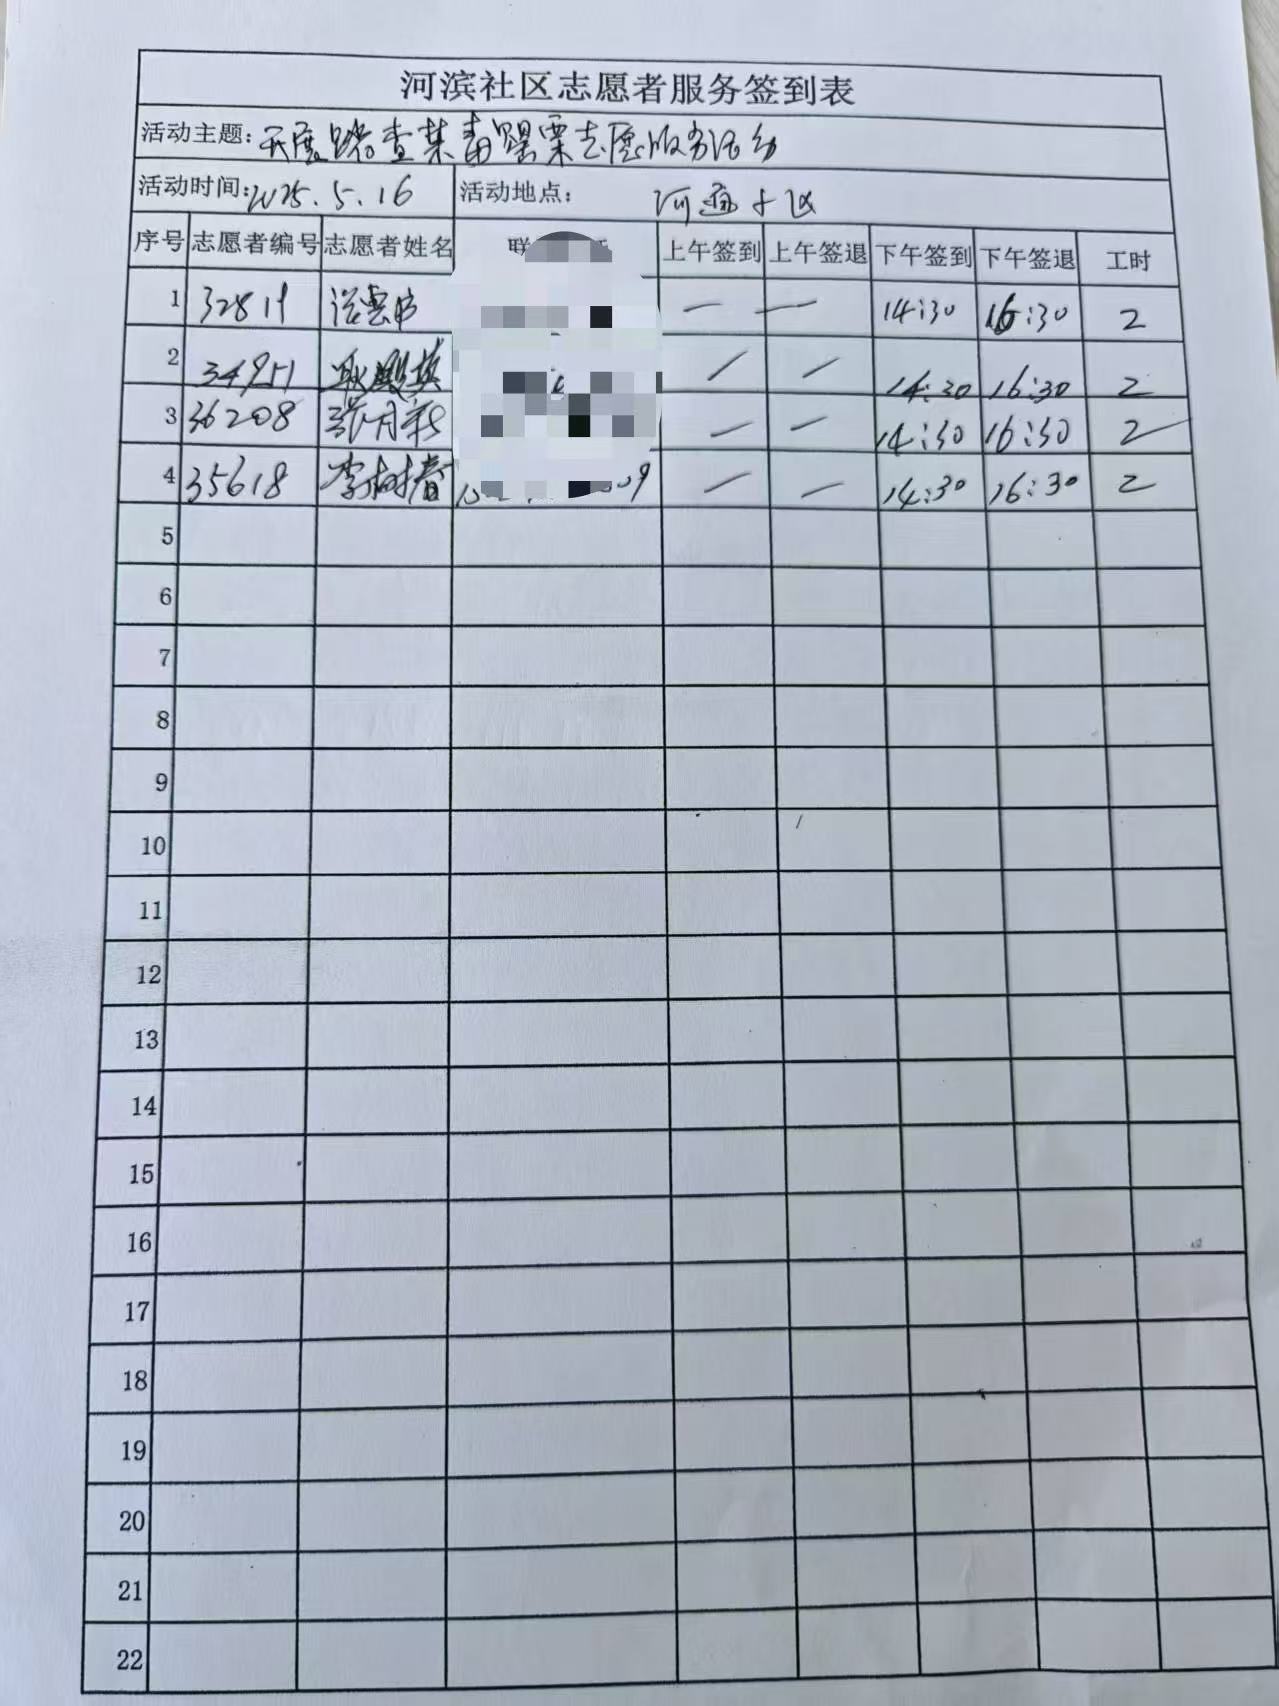 河滨社区志愿者服务签到表
活动主题：开展踏查禁毒罂粟志愿服务活动
活动时间：2025.5.16 活动地点：河滨小区
序号 志愿者编号 志愿者姓名 联 上午签到 上午签退 下午签到 下午签退 工时
1 — — 14:30 16:30 2
2 — — 14:30 16:30 2
3 36208 张月新 — — 14:30 16:30 2
4 35618 李树春 — — 14:30 16:30 2
5
6
7
8
9
10
11
12
13
14
15
16
17
18
19
20
21
22